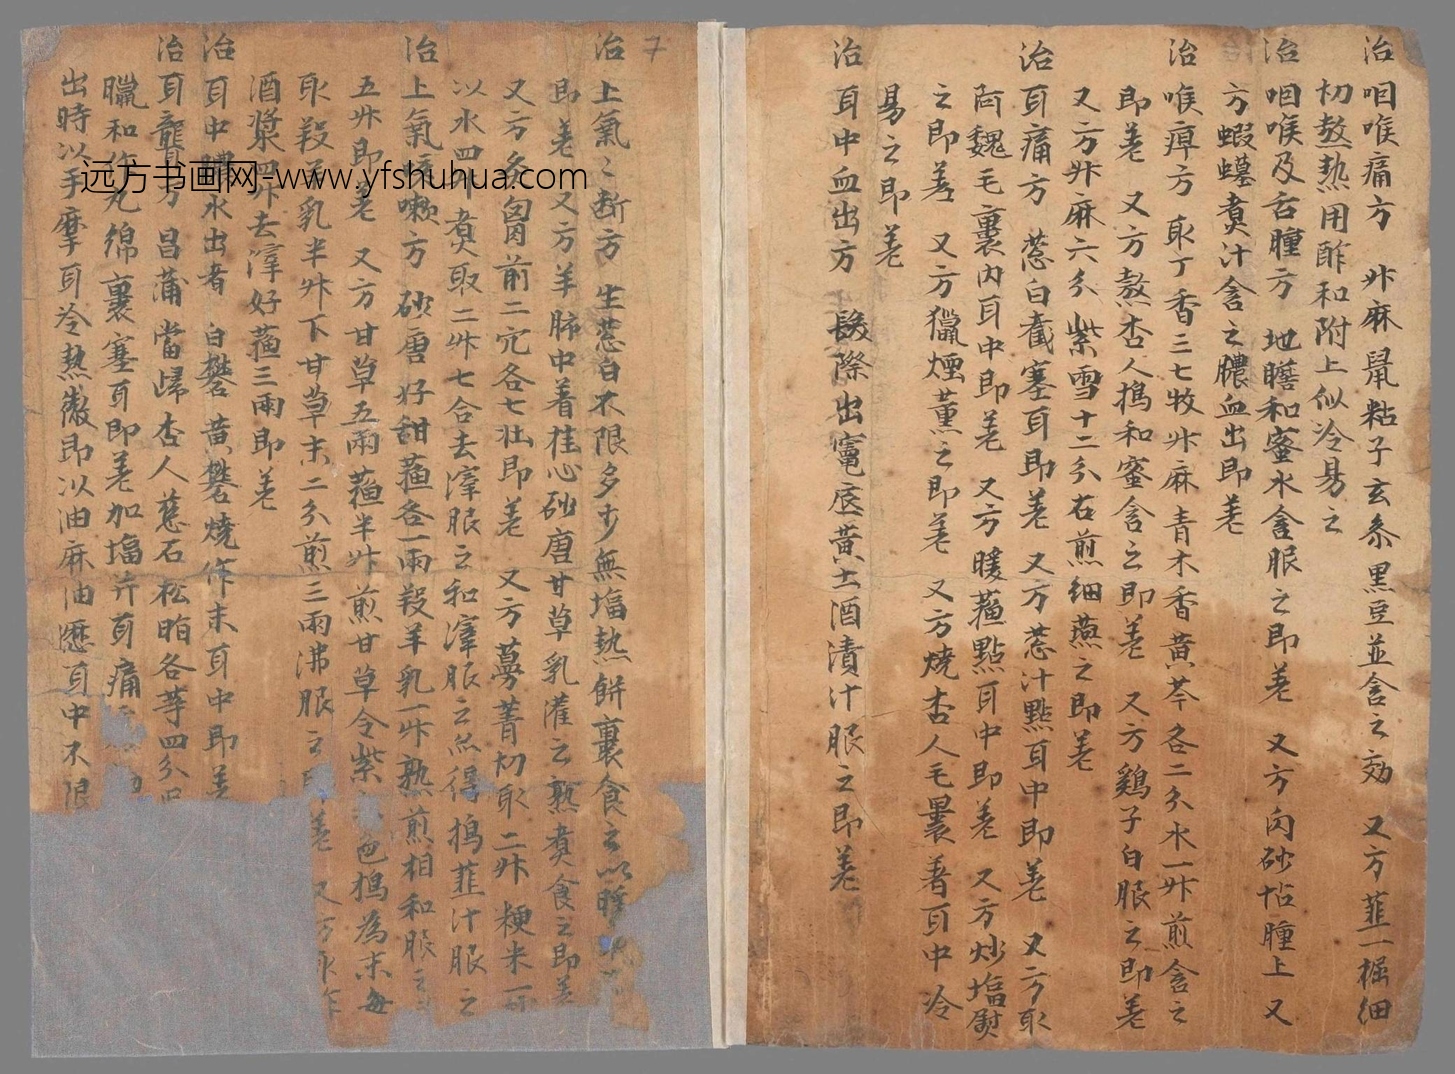 治咽喉痛方 升麻鼠粘子玄参黑豆並含之効 又方韮一握细
切熬熱用酢和附上似冷易之
治咽喉及舌腫方 地膽和蜜水含服之即差 又方肉砂怗腫上 又
方蝦蟇煮汁含之膿血出即差
治喉痺方 取丁香三七牧升麻青木香黄芩各二分水一升煎含之
即差 又方熬杏人搗和蜜含之即差 又方鷄子白服之即差
又方升麻六分紫雪十二分右煎细燕之即差
治耳痛方 葱白截塞耳即差 又方葱汁點耳中即差 又方取
阿魏毛裏内耳中即差 又方暖蘓點耳中即差 又方炒塩熨
之即差 又方獵煙薫之即差 又方燒杏人毛裹著耳中冷
易之即差
治耳中血出方 髮際出竃底黄土酒漬汁服之即差
7
治上氣之断方 生葱白不限多少無塩熱餅裹食之以
即差 又方羊肺中着桂心砂唐甘草乳灌之熟煮食之即差
又方灸匈前二穴各七壮即差 又方蔓菁切取二升粳米一
以水四升煮取二升七合去滓服之和滓服之亦得搗韮汁服之
治上氣 嗽方 砂唐好甜蘓各一兩羖羊乳一升熟煎相和服之
五升即差 又方甘草五兩蘓半升煎甘草令紫 色搗為末每
取羖羊乳半升下甘草末二分煎三兩沸服之 差 又方取
酒漿四升去滓好蘓三兩即差
治耳中膿水出者 白礬黄礬燒作末耳中即差
治耳聾方 昌蒲當歸杏人葱石松脂各等四分
臘和作丸绵裹塞耳即差加塩并耳痛
出時以手摩耳冷熱徹即以油麻油瀝耳中不限
远方书画网-www.yfshuhua.com